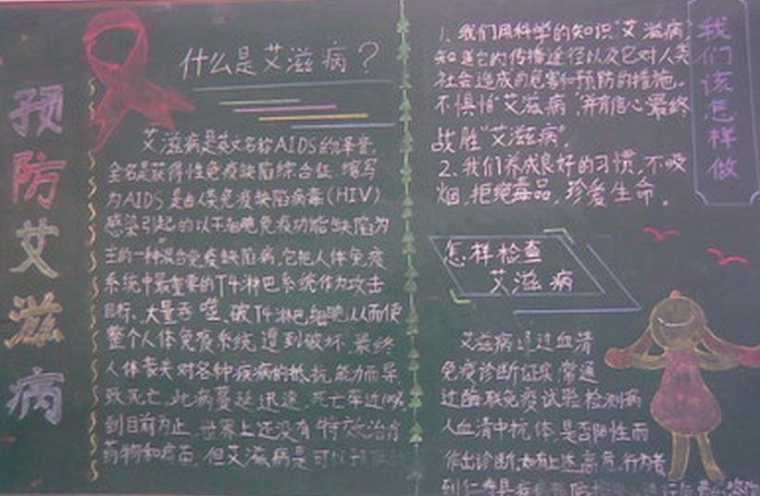 预防艾滋病
什么是艾滋病？
艾滋病是英文名称AIDS的
全名是获得性免疫缺陷综合征 缩写
为AIDS 是由人类免疫缺陷病毒(HIV)
感染引起的以T细胞免疫功能缺陷为
主的一种混合免疫缺陷病,它把人体免疫
系统中最重要的T4淋巴系统作为攻击
目标、大量吞噬、破T4淋巴细胞,从而使
整个人体免疫系统遭到破坏.最终
人体丧失对各种疾病的抵抗能力而导
致死亡,此病蔓延迅速,死亡率近
到目前为止,世界上还没有特效治疗
药物和疫苗,但艾滋病是可以预
我们该怎样做
1、我们用科学的知识"艾滋病"
知道它的传播途径以及它对人类
社会造成的危害和预防的措施。
不惧怕"艾滋病",并有信心最终
战胜"艾滋病"。
2、我们养成良好的习惯,不吸
烟,拒绝毒品,珍爱生命。
怎样检查
艾滋病
艾滋病通过血清
免疫诊断证实,常通
过酶联免疫试验检测病
人血清中抗体,是否阳性而
作出诊断,如有上述高危行为者